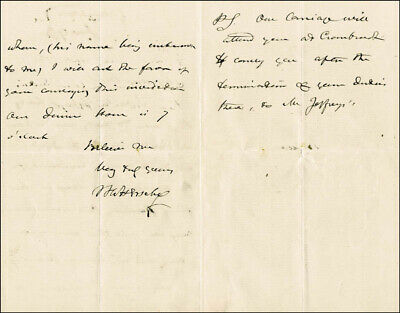 whom, (his name being unknown
to me) I will ask the favor of
your conveying this invitation
Our dinner hour is 7
o'clock
Believe me
Very truly yours
JFW Herschel
PS. Our Carriage will
attend you at Cranbrook
& convey you after the
termination of your duties
there, to Mr Jeffreys's